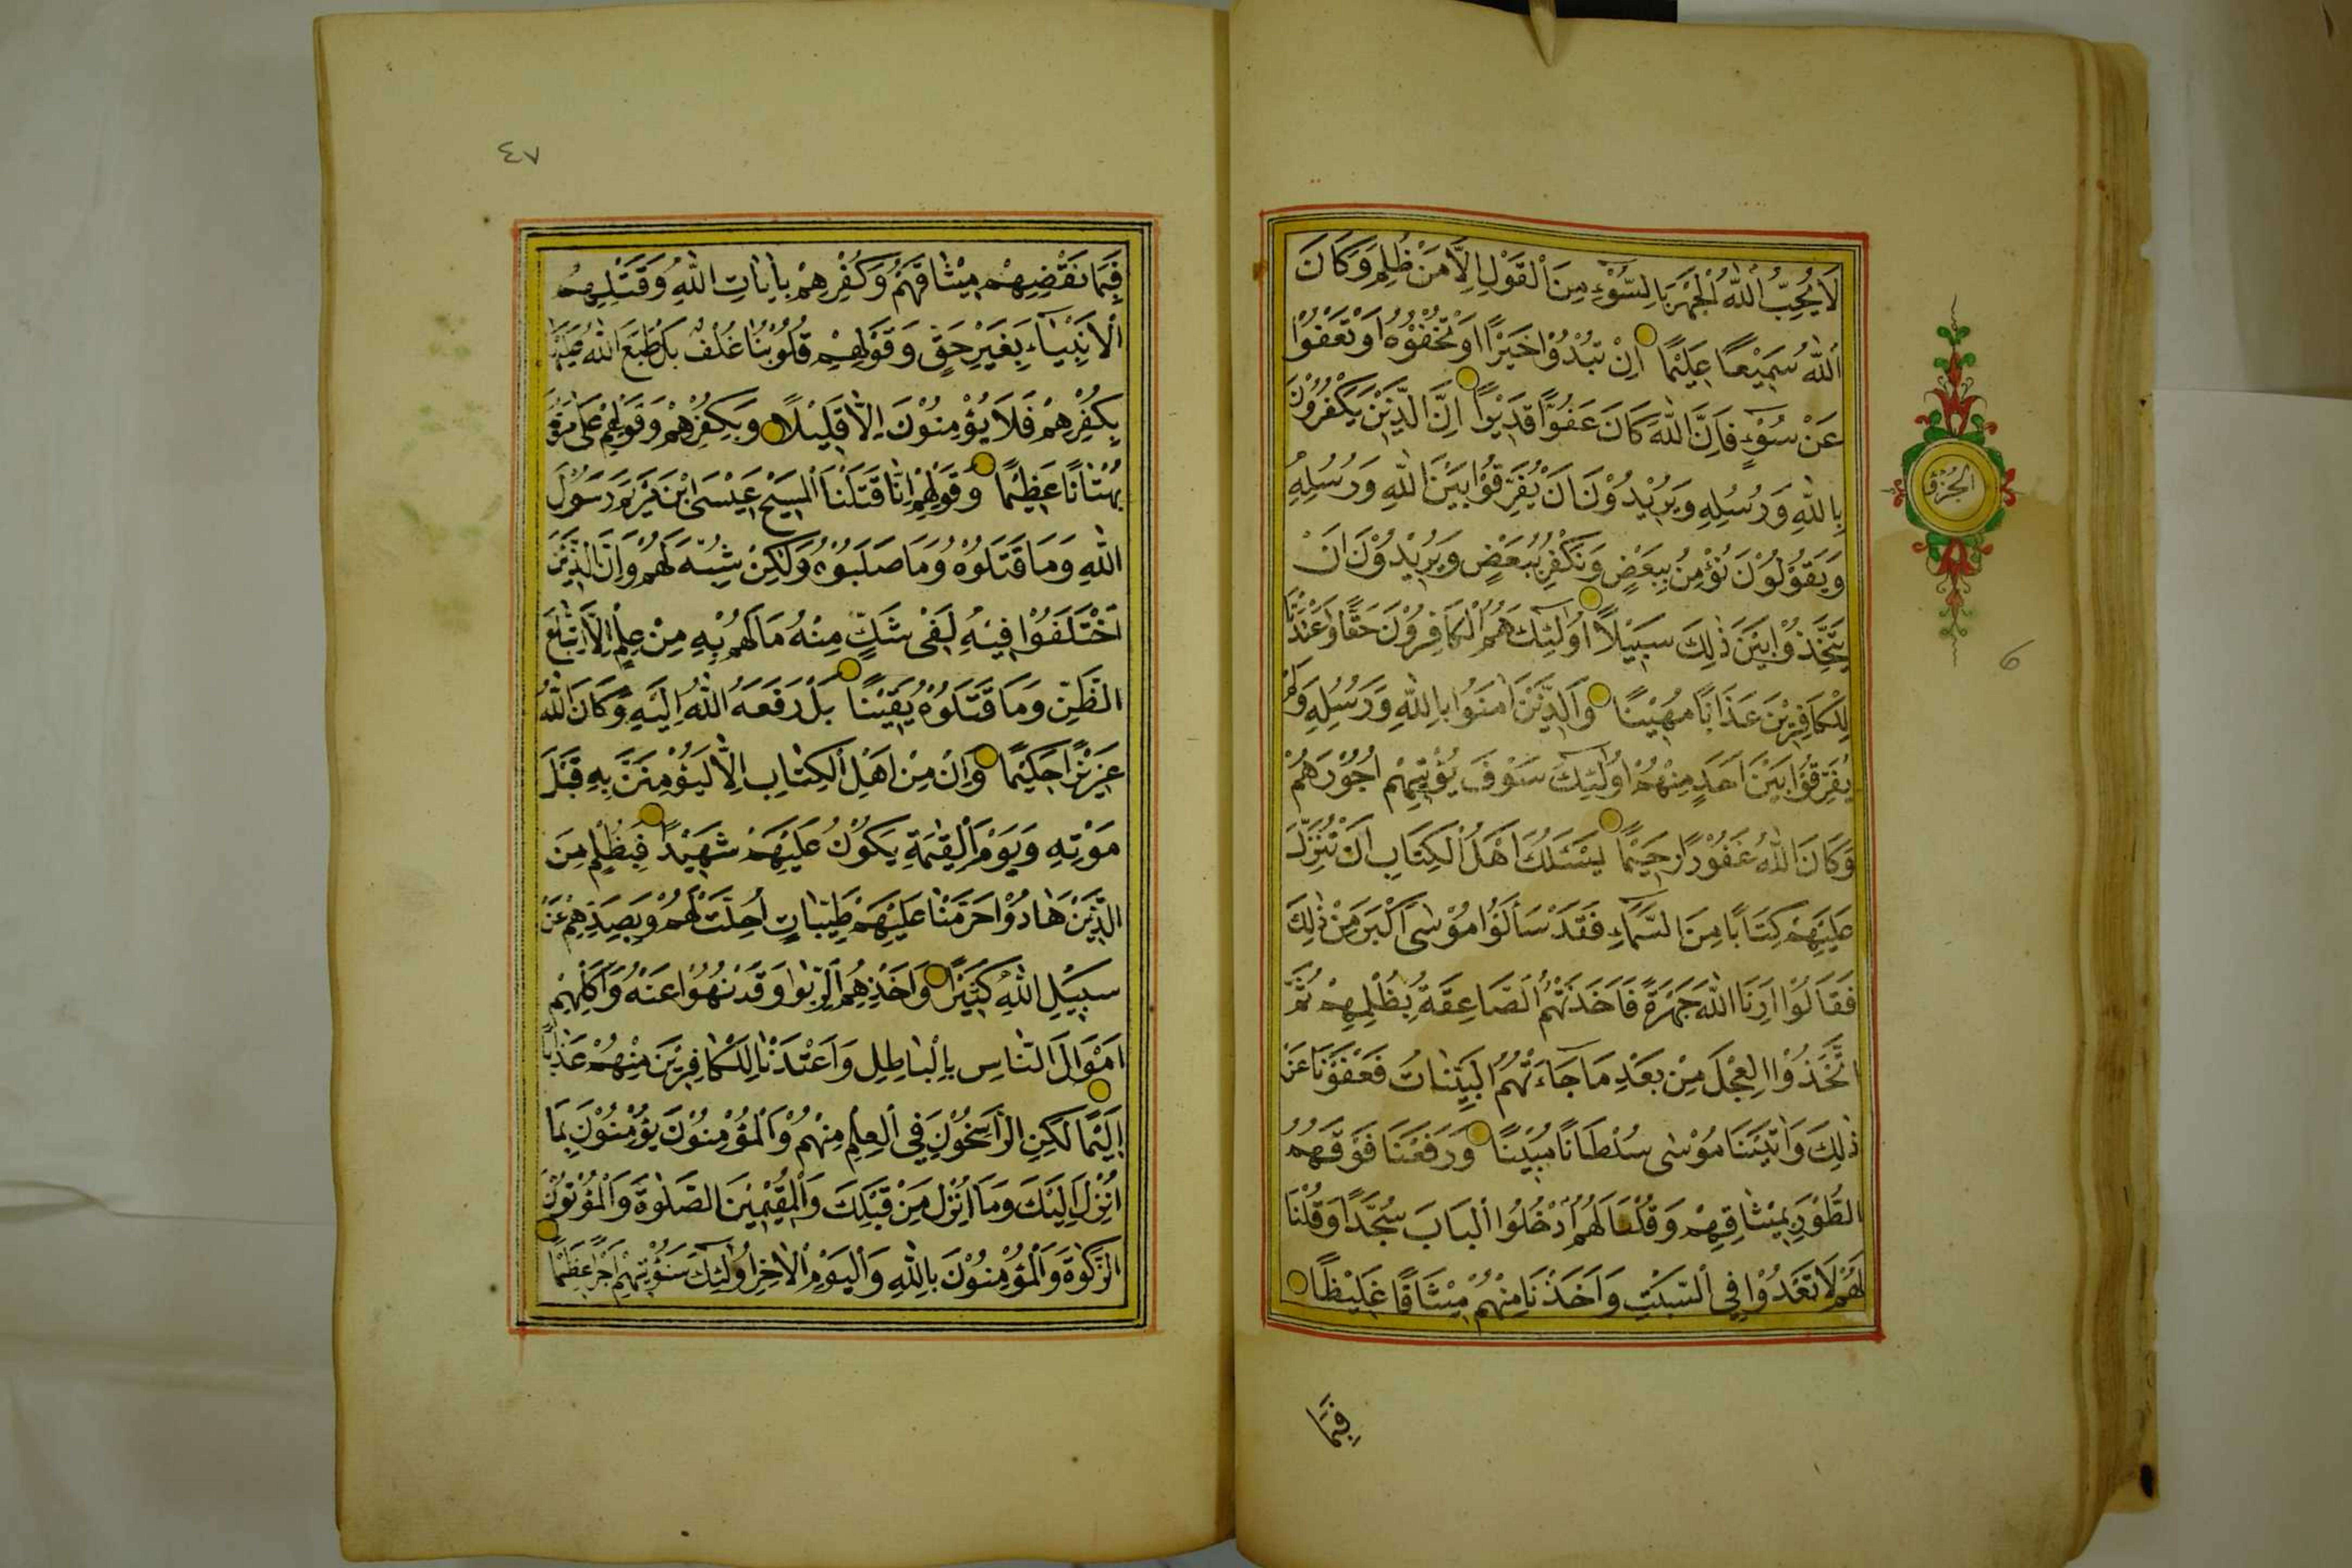 لَا يُحِبُّ اللّٰهُ الْجَهْرَ بِالسُّوْءِ مِنَ الْقَوْلِ اِلَّا مَنْ ظُلِمَ وَكَانَ
اللّٰهُ سَمِيْعًا عَلِيْمًا اِنْ تُبْدُوْا خَيْرًا اَوْ تُخْفُوْهُ اَوْ تَعْفُوْا
عَنْ سُوْءٍ فَاِنَّ اللّٰهَ كَانَ عَفُوًّا قَدِيْرًا اِنَّ الَّذِيْنَ يَكْفُرُوْنَ
بِاللّٰهِ وَرُسُلِهِ وَيُرِيْدُوْنَ اَنْ يُفَرِّقُوْا بَيْنَ اللّٰهِ وَرُسُلِهِ
وَيَقُوْلُوْنَ نُؤْمِنُ بِبَعْضٍ وَنَكْفُرُ بِبَعْضٍ وَيُرِيْدُوْنَ اَنْ
يَتَّخِذُوْا بَيْنَ ذٰلِكَ سَبِيْلًا اُولٰئِكَ هُمُ الْكَافِرُوْنَ حَقًّا وَاَعْتَدْنَا
لِلْكَافِرِيْنَ عَذَابًا مُهِيْنًا وَالَّذِيْنَ اٰمَنُوْا بِاللّٰهِ وَرُسُلِهِ وَلَمْ
يُفَرِّقُوْا بَيْنَ اَحَدٍ مِنْهُمْ اُولٰئِكَ سَوْفَ يُؤْتِيْهِمْ اُجُوْرَهُمْ
وَكَانَ اللّٰهُ غَفُوْرًا رَحِيْمًا يَسْئَلُكَ اَهْلُ الْكِتَابِ اَنْ تُنَزِّلَ
عَلَيْهِمْ كِتَابًا مِنَ السَّمَاءِ فَقَدْ سَأَلُوْا مُوْسٰى اَكْبَرَ مِنْ ذٰلِكَ
فَقَالُوْا اَرِنَا اللّٰهَ جَهْرَةً فَاَخَذَتْهُمُ الصَّاعِقَةُ بِظُلْمِهِمْ ثُمَّ
اتَّخَذُوْا الْعِجْلَ مِنْ بَعْدِ مَا جَاءَتْهُمُ الْبَيِّنَاتُ فَعَفَوْنَا عَنْ
ذٰلِكَ وَاٰتَيْنَا مُوْسٰى سُلْطَانًا مُبِيْنًا وَرَفَعْنَا فَوْقَهُمُ
الطُّوْرَ بِمِيْثَاقِهِمْ وَقُلْنَا لَهُمُ ادْخُلُوْا الْبَابَ سُجَّدًا وَقُلْنَا
لَهُمْ لَا تَعْدُوْا فِي السَّبْتِ وَاَخَذْنَا مِنْهُمْ مِيْثَاقًا غَلِيْظًا
فَبِمَا
٤٧
فَبِمَا نَقْضِهِمْ مِيْثَاقَهُمْ وَكُفْرِهِمْ بِاٰيَاتِ اللّٰهِ وَقَتْلِهِمُ
الْاَنْبِيَاءَ بِغَيْرِ حَقٍّ وَقَوْلِهِمْ قُلُوْبُنَا غُلْفٌ بَلْ طَبَعَ اللّٰهُ عَلَيْهَا
بِكُفْرِهِمْ فَلَا يُؤْمِنُوْنَ اِلَّا قَلِيْلًا وَبِكُفْرِهِمْ وَقَوْلِهِمْ عَلٰى مَرْيَمَ
بُهْتَانًا عَظِيْمًا وَقَوْلِهِمْ اِنَّا قَتَلْنَا الْمَسِيْحَ عِيْسَى ابْنَ مَرْيَمَ رَسُوْلَ
اللّٰهِ وَمَا قَتَلُوْهُ وَمَا صَلَبُوْهُ وَلٰكِنْ شُبِّهَ لَهُمْ وَاِنَّ الَّذِيْنَ
اخْتَلَفُوْا فِيْهِ لَفِيْ شَكٍّ مِنْهُ مَا لَهُمْ بِهِ مِنْ عِلْمٍ اِلَّا اتِّبَاعَ
الظَّنِّ وَمَا قَتَلُوْهُ يَقِيْنًا بَلْ رَفَعَهُ اللّٰهُ اِلَيْهِ وَكَانَ اللّٰهُ
عَزِيْزًا حَكِيْمًا وَاِنْ مِنْ اَهْلِ الْكِتَابِ اِلَّا لَيُؤْمِنَنَّ بِهِ قَبْلَ
مَوْتِهِ وَيَوْمَ الْقِيٰمَةِ يَكُوْنُ عَلَيْهِمْ شَهِيْدًا فَبِظُلْمٍ مِنَ
الَّذِيْنَ هَادُوْا حَرَّمْنَا عَلَيْهِمْ طَيِّبَاتٍ اُحِلَّتْ لَهُمْ وَبِصَدِّهِمْ عَنْ
سَبِيْلِ اللّٰهِ كَثِيْرًا وَاَخْذِهِمُ الرِّبٰوا وَقَدْ نُهُوْا عَنْهُ وَاَكْلِهِمْ
اَمْوَالَ النَّاسِ بِالْبَاطِلِ وَاَعْتَدْنَا لِلْكَافِرِيْنَ مِنْهُمْ عَذَابًا
اَلِيْمًا لٰكِنِ الرَّاسِخُوْنَ فِي الْعِلْمِ مِنْهُمْ وَالْمُؤْمِنُوْنَ يُؤْمِنُوْنَ بِمَا
اُنْزِلَ اِلَيْكَ وَمَا اُنْزِلَ مِنْ قَبْلِكَ وَالْمُقِيْمِيْنَ الصَّلٰوةَ وَالْمُؤْتُوْنَ
الزَّكٰوةَ وَالْمُؤْمِنُوْنَ بِاللّٰهِ وَالْيَوْمِ الْاٰخِرِ اُولٰئِكَ سَنُؤْتِيْهِمْ اَجْرًا عَظِيْمًا